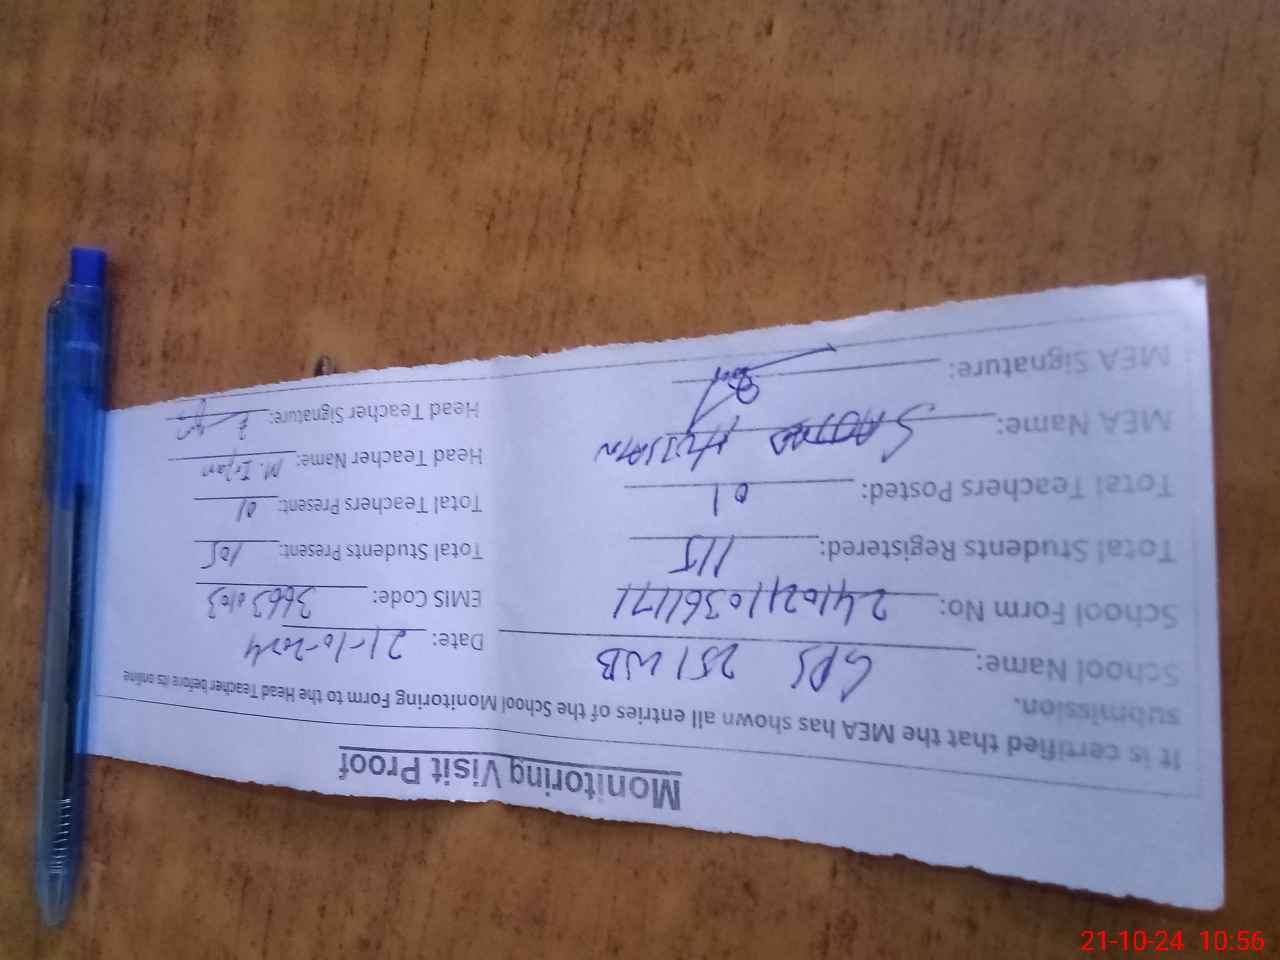 Monitoring Visit Proof
It is certified that the MEA has shown all entries of the School Monitoring Form to the Head Teacher before its online
submission.
School Name: GPS 251 WB Date: 21-10-2024
School Form No: 24102110361171 EMIS Code: 36630103
Total Students Registered: 115 Total Students Present: 105
Total Teachers Posted: 01 Total Teachers Present: 01
MEA Name: Hussain Head Teacher Name: M. Irfan
MEA Signature: Head Teacher Signature:
21-10-24 10:56